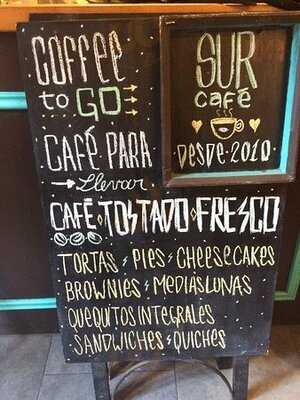 COFFEE
to GO
CAFÉ PARA
Llevar
SUR
café
DESDE 2010
CAFÉ TOSTADO FRESCO
TORTAS PIES CHEESECAKES
BROWNIES MEDIASLUNAS
QUEQUITOS INTEGRALES
SANDWICHES QUICHES